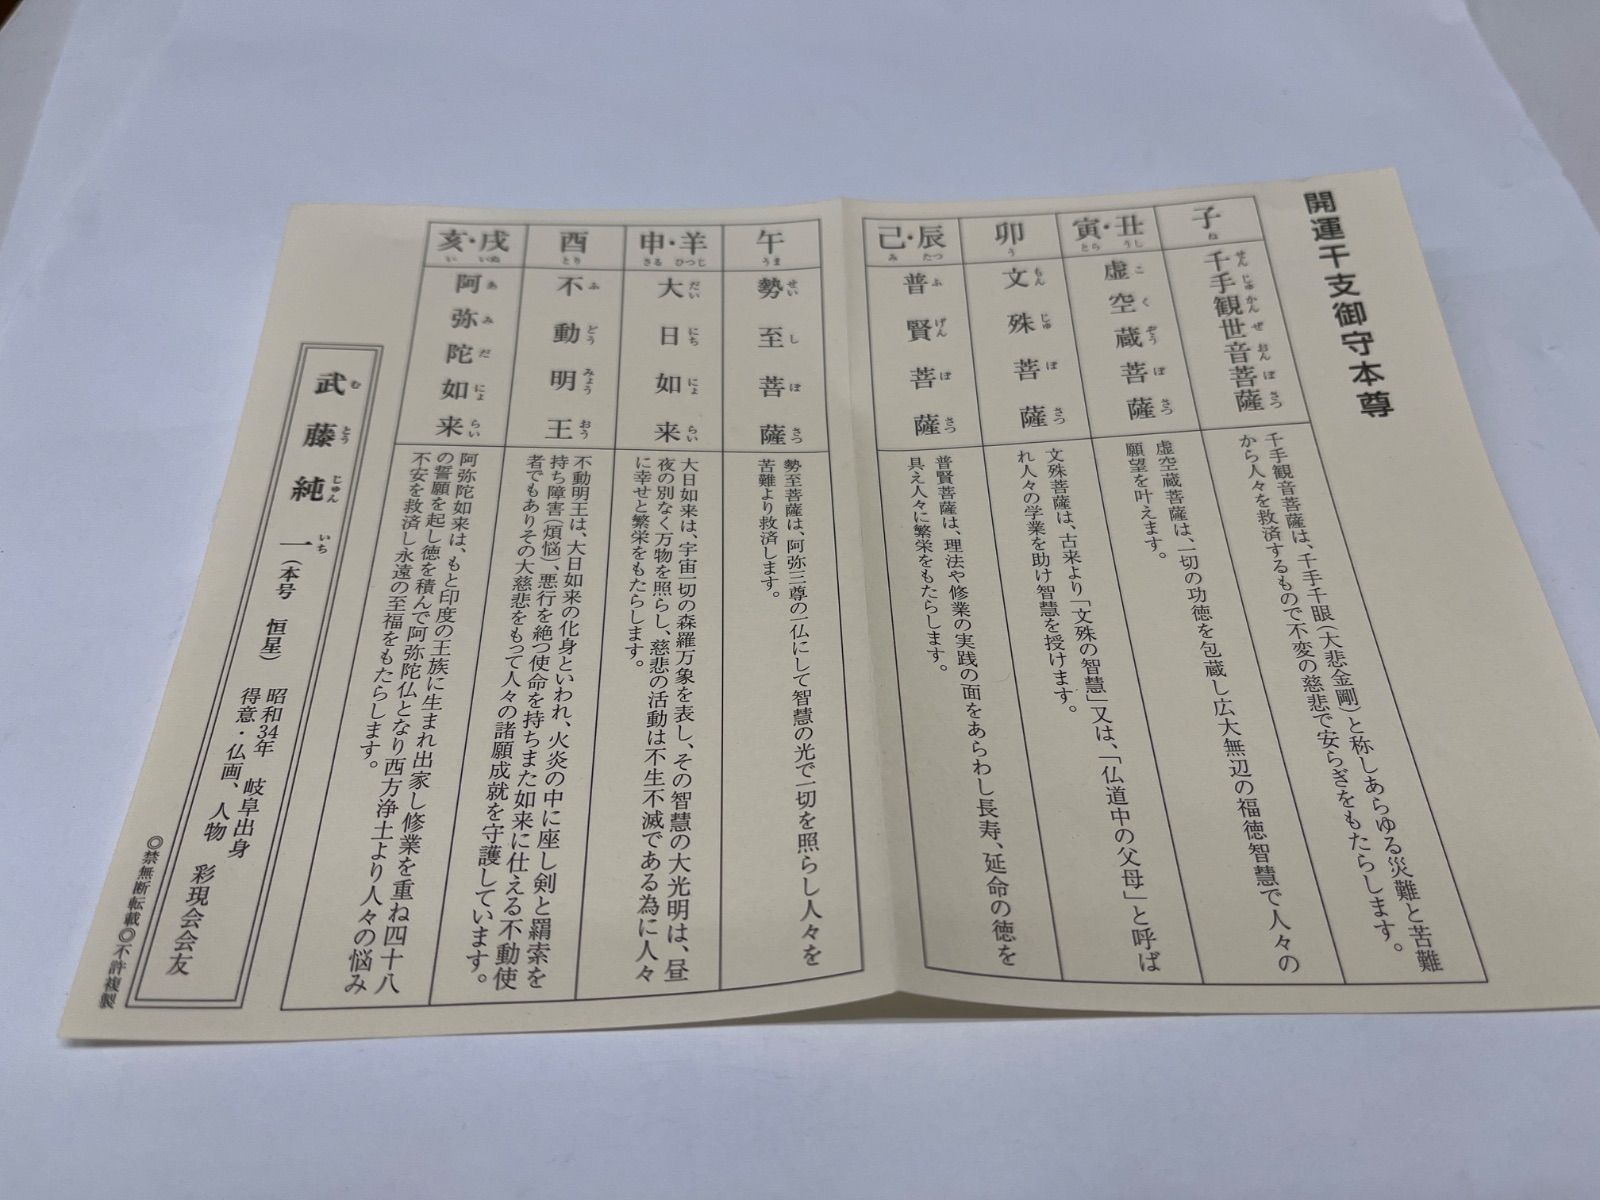 開運干支御守本尊
子
ね
千手観世音菩薩
せんじゅかんぜおんぼさつ
千手観音菩薩は、千手千眼(大悲金剛)と称しあらゆる災難と苦難
から人々を救済するもので不変の慈悲で安らぎをもたらします。
寅・丑
とら うし
虚空蔵菩薩
こくぞうぼさつ
虚空蔵菩薩は、一切の功徳を包蔵し広大無辺の福徳智慧で人々の
願望を叶えます。
卯
う
文殊菩薩
もんじゅぼさつ
文殊菩薩は、古来より「文殊の智慧」又は、「仏道中の父母」と呼ば
れ人々の学業を助け智慧を授けます。
己・辰
み たつ
普賢菩薩
ふげんぼさつ
普賢菩薩は、理法や修業の実践の面をあらわし長寿、延命の徳を
具え人々に繁栄をもたらします。
午
うま
勢至菩薩
せいしぼさつ
勢至菩薩は、阿弥三尊の一仏にして智慧の光で一切を照らし人々を
苦難より救済します。
申・羊
さる ひつじ
大日如来
だいにちにょらい
大日如来は、宇宙一切の森羅万象を表し、その智慧の大光明は、昼
夜の別なく万物を照らし、慈悲の活動は不生不滅である為に人々
に幸せと繁栄をもたらします。
酉
とり
不動明王
ふどうみょうおう
不動明王は、大日如来の化身といわれ、火炎の中に座し剣と羂索を
持ち障害(煩悩)、悪行を絶つ使命を持ちまた如来に仕える不動使
者でもありその大慈悲をもって人々の諸願成就を守護しています。
亥・戌
い いぬ
阿弥陀如来
あみだにょらい
阿弥陀如来は、もと印度の王族に生まれ出家し修業を重ね四十八
の誓願を起し徳を積んで阿弥陀仏となり西方浄土より人々の悩み
不安を救済し永遠の至福をもたらします。
武藤純一(本号 恒星)
むとうじゅんいち
昭和34年 岐阜出身
得意・仏画、人物 彩現会会友
◎禁無断転載◎不許複製